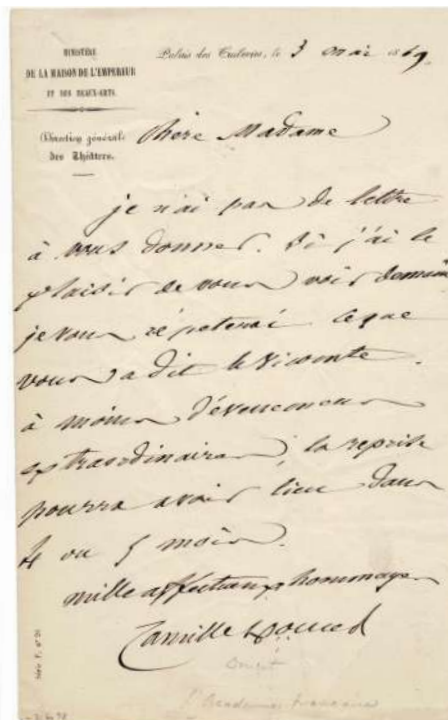 MINISTÈRE
DE LA MAISON DE L'EMPEREUR
ET DES BEAUX-ARTS.
Direction générale
des Théâtres.
Palais des Tuileries, le 3 mai 1869.
Chère Madame
je n'ai pas de lettre
à vous donner. Si j'ai le
plaisir de vous voir demain
je vous répeterai ce que
vous a dit le Vicomte.
à moins d'évenemens
extraordinaires, la reprise
pourra avoir lieu dans
4 ou 5 mois.
mille affectueux hommages
Camille Doucet
Doucet
l'Académie française